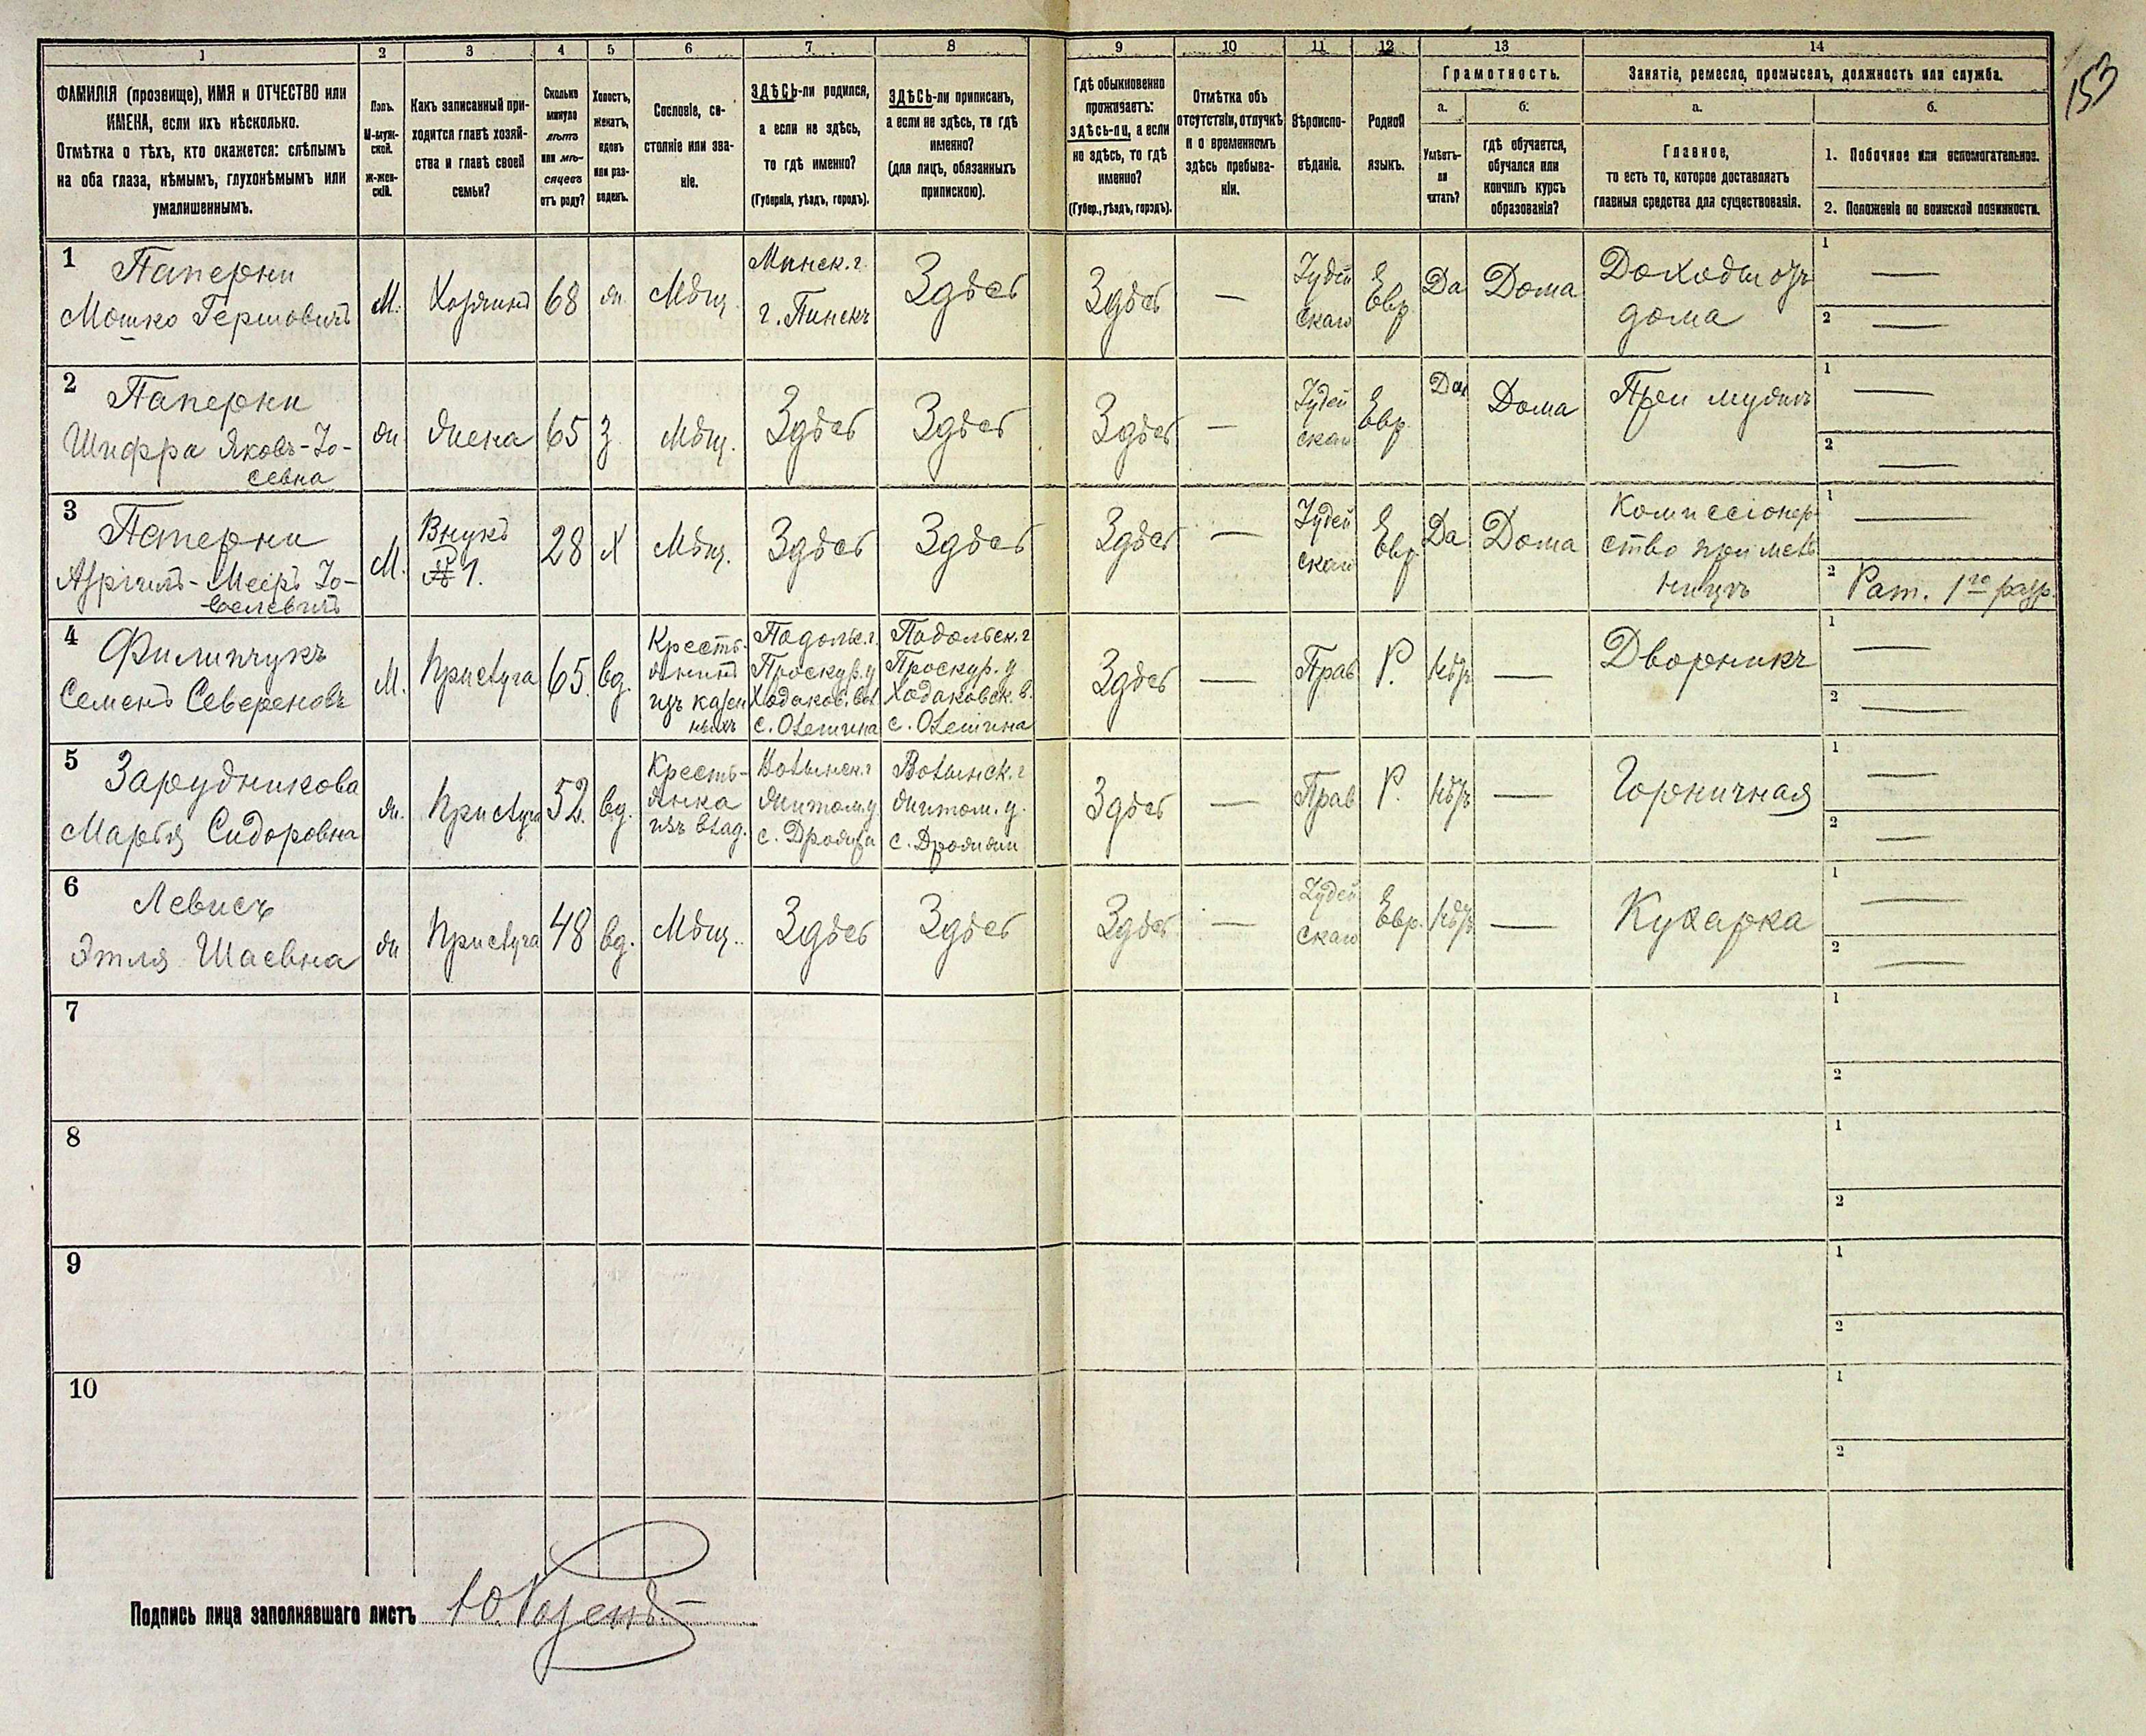 153
1
2
3
4
5
6
7
8
9
10
11
12
13
14
ФАМИЛІЯ (прозвище), ИМЯ и ОТЧЕСТВО или
ИМЕНА, если ихъ нѣсколько.
Отмѣтка о тѣхъ, кто окажется: слѣпымъ
на оба глаза, нѣмымъ, глухонѣмымъ или
умалишеннымъ.
Полъ.
М-муж-
ской.
Ж-жен-
скій.
Какъ записанный при-
ходится главѣ хозяй-
ства и главѣ своей
семьи?
Сколько
минуло
лѣтъ
или мѣ-
сяцевъ
отъ роду?
Холостъ,
женатъ,
вдовъ
или раз-
веденъ.
Сословіе, со-
стояніе или зва-
ніе.
ЗДѢСЬ-ли родился,
а если не здѣсь,
то гдѣ именно?
(Губернія, уѣздъ, городъ).
ЗДѢСЬ-ли приписанъ,
а если не здѣсь, то гдѣ
именно?
(для лицъ, обязанныхъ
припискою).
Гдѣ обыкновенно
проживаетъ:
здѣсь-ли, а если
не здѣсь, то гдѣ
именно?
(Губер., уѣздъ, городъ).
Отмѣтка объ
отсутствіи, отлучкѣ
и о временномъ
здѣсь пребыва-
ніи.
Вѣроиспо-
вѣданіе.
Родной
языкъ.
Грамотность.
а.
Умѣетъ-
ли
читать?
б.
гдѣ обучается,
обучался или
кончилъ курсъ
образованія?
Занятіе, ремесло, промыселъ, должность или служба.
а.
Главное,
то есть то, которое доставляетъ
главныя средства для существованія.
б.
1. Побочное или вспомогательное.
2. Положеніе по воинской повинности.
1
Паперни
Мошко Гершовичъ
М.
Хозяинъ
68
ж.
Мѣщ.
Минск. г.
г. Пинскъ
Здѣсь
Здѣсь
—
Іудей
ская
Евр
Да
Дома
Доходы отъ
дома
1 —
2 —
2
Паперни
Шифра Яковъ-Іо-
севна
ж
жена
65
З
Мѣщ.
Здѣсь
Здѣсь
Здѣсь
—
Іудей
ская
Евр.
Да
Дома
При мужѣ
1 —
2 —
3
Паперни
Меіръ Іо-
М.
Внукъ
№ 1.
28
Х
Мѣщ.
Здѣсь
Здѣсь
Здѣсь
—
Іудей
ская
Евр.
Да
Дома
Комиссіонер
ство при мель
ницѣ
1 —
2 Рат. 1го разр.
4
Филипчукъ
Семенъ Севереновъ
М.
Прислуга
65.
вд.
Кресть-
янинъ
изъ казен
ныхъ
Подольс. г
Проскур. у
Ходаков. вол
с. Олешина
Подольск. г
Проскур. у
Ходаковск. в.
с. Олешина
Здѣсь
—
Прав
Р.
Нѣтъ
—
Дворникъ
1 —
2 —
5
Зарудникова
Марья Сидоровна
ж.
Прислуга
52.
вд.
Кресть-
янка
изъ влад.
Волынск. г
Житом. у
Волынск. г
Житом. у.
Здѣсь
—
Прав
Р.
Нѣтъ
—
Горничная
1 —
2 —
6
Левисъ
Этля Шаевна
ж
Прислуга
48
вд.
Мѣщ.
Здѣсь
Здѣсь
Здѣсь
—
Іудей
ская
Евр.
Нѣтъ
—
Кухарка
1 —
2 —
7
1
2
8
1
2
9
1
2
10
1
2
Подпись лица заполнявшаго листъ